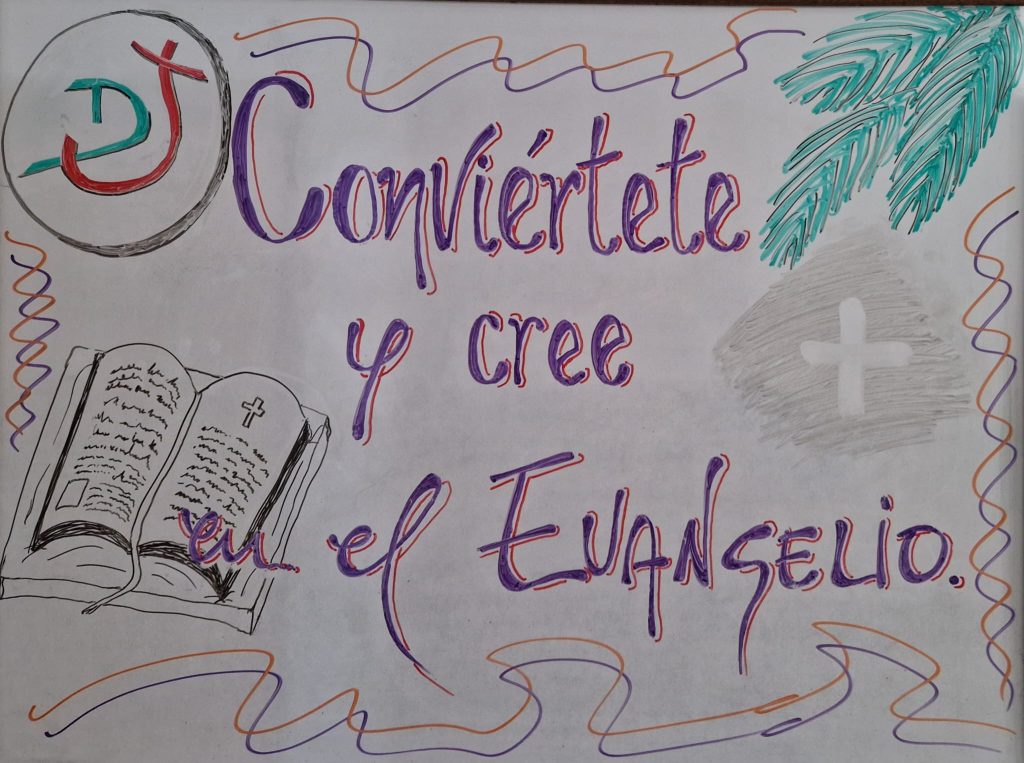 DJ
Conviértete
y cree
en el Evangelio.